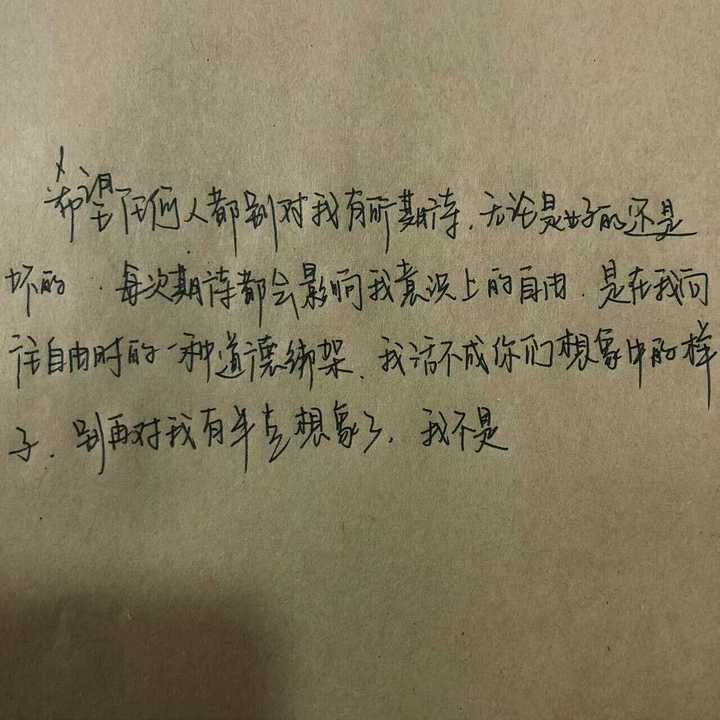 希望任何人都别对我有所期待,无论是好的还是
坏的.每次期待都会影响我意识上的自由.是在我向
往自由时的一种道德绑架.我活不成你们想象中的样
子.别再对我有半点想象了,我不是